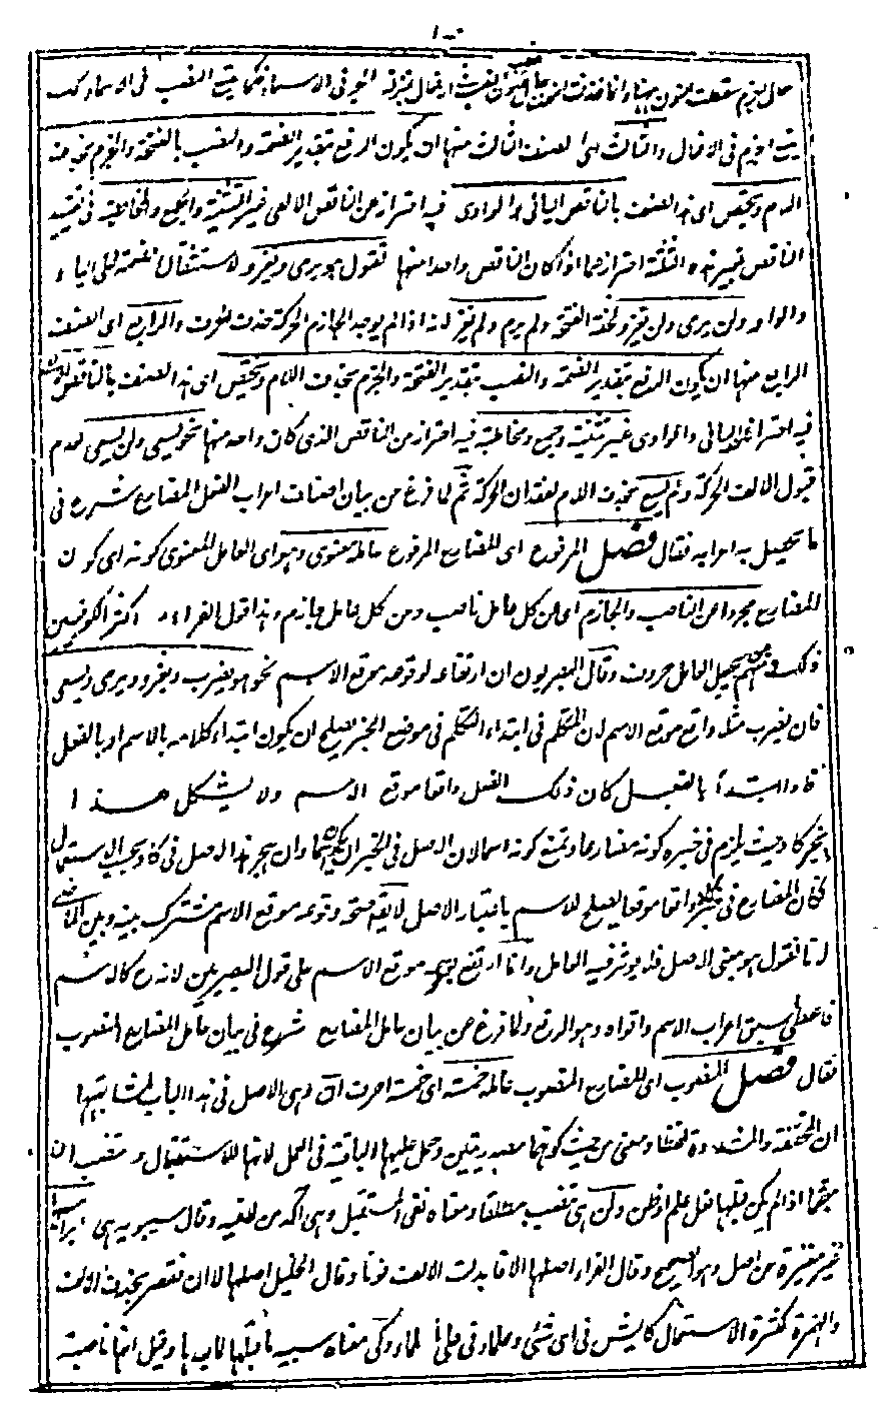 حال الجزم سقطت النون بمنزلة الجر في الاسماء فكما يمتنع النصب في الاسماء كـ
يتبع الجزم في الافعال والثالث اى الصنف الثالث منها ان يكون الرفع بتقدير الضمة والنصب بالفتحة والجزم بحذف
اللام ويختص اى هذا الصنف بالناقص اليائى والواوى فيه احتراز عن الناقص الالفى غير التثنية والجمع والمخاطبة فى تقييد
الناقص بغير هذه الثلثة احتراز عما اذا كان الناقص واحدا منها تقول هو يرمى ويغزو لاستثقال الضمة على الياء
والواو ولن يرمى ولن يغزو لخفة الفتحة ولم يرم ولم يغز لانه اذا لم يوجد الجازم الحركة حذف الحرف والرابع اى الصنف
الرابع منها ان يكون الرفع بتقدير الضمة والنصب بتقدير الفتحة والجزم بحذف اللام ويختص اى هذا الصنف بالناقص الالفى
فيه احتراز عن اليائى والواوى غير تثنية وجمع ومخاطبة فيه احتراز من الناقص الذى كان واحد منها نحو يسعى ولن يسعى لعدم
قبول الالف الحركة ولم يسع بحذف اللام لفقدان الحركة ثم لما فرغ من بيان اصناف اعراب الفعل المضارع شرع فى
ما يحصل به اعرابه فقال فصل المرفوع اى المضارع المرفوع عامله معنوى وهو اى العامل المعنوى كونه اى كون
المضارع مجردا عن الناصب والجازم اى عن كل عامل ناصب ومن كل عامل جازم وهذا قول الفراء و اكثر الكوفيين
ذلك فمنهم من يجعل العامل حروف وقال البصريون ان ارتفاعه لوقوعه موقع الاسم نحو هو يضرب ويغزو ويرمى ويسعى
فان يضرب مثلا واقع موقع الاسم لان المتكلم فى ابتداء التكلم فى موضع الخبر يصلح ان يكون ابتداء كلامه بالاسم او بالفعل
فاذا ابتدأ بالفعل كان ذلك الفعل واقعا موقع الاسم ولا يشكل هذا
بخبر كاد حيث يلزم فى خبره كونه مضارعا ويمتنع كونه اسما لان الاصل فى الخبر ان يكون اسما وان هجر هذا الاصل فى كاد بحسب الاستعمال
فكان المضارع فى خبر كاد واقعا موقعا يصلح للاسم باعتبار الاصل لا يقال صحة وقوعه موقع الاسم مشترك بينه وبين الماضى
لانا نقول هو مبنى الاصل فلا يوثر فيه العامل وانما ارتفع بوقوعه موقع الاسم على قول البصريين لانه ح كالاسم
فاعطى اسبق اعراب الاسم واقواه وهو الرفع ولما فرغ عن بيان عامل المضارع شرع فى بيان عامل المضارع المنصوب
فقال فصل المنصوب اى المضارع المنصوب عامله خمسة اى خمسة احرف ان وهى الاصل فى هذا الباب لمشابهتها
ان المخففة والمشددة لفظا ومعنى من حيث كونهما مصدريتين وحمل عليها الباقية فى العمل لانها للاستقبال و تنصب ان
حتما اذا لم يكن قبلها فعل علم او ظن ولن اى تنصب مطلقا ومعناه نفى المستقبل وهى آكد من لا لنفيه وقال سيبويه هى
غير مغيرة من اصل وهو الصحيح وقال الفراء اصلها لا فابدلت الالف نونا وقال الخليل اصلها لا ان فقصر بحذف الالف
والهمزة لكثرة الاستعمال كايش فى اى شئ وعلماء فى على الماء وكى معناه سببية ما قبلها لما بعدها وقيل انها ناصبة